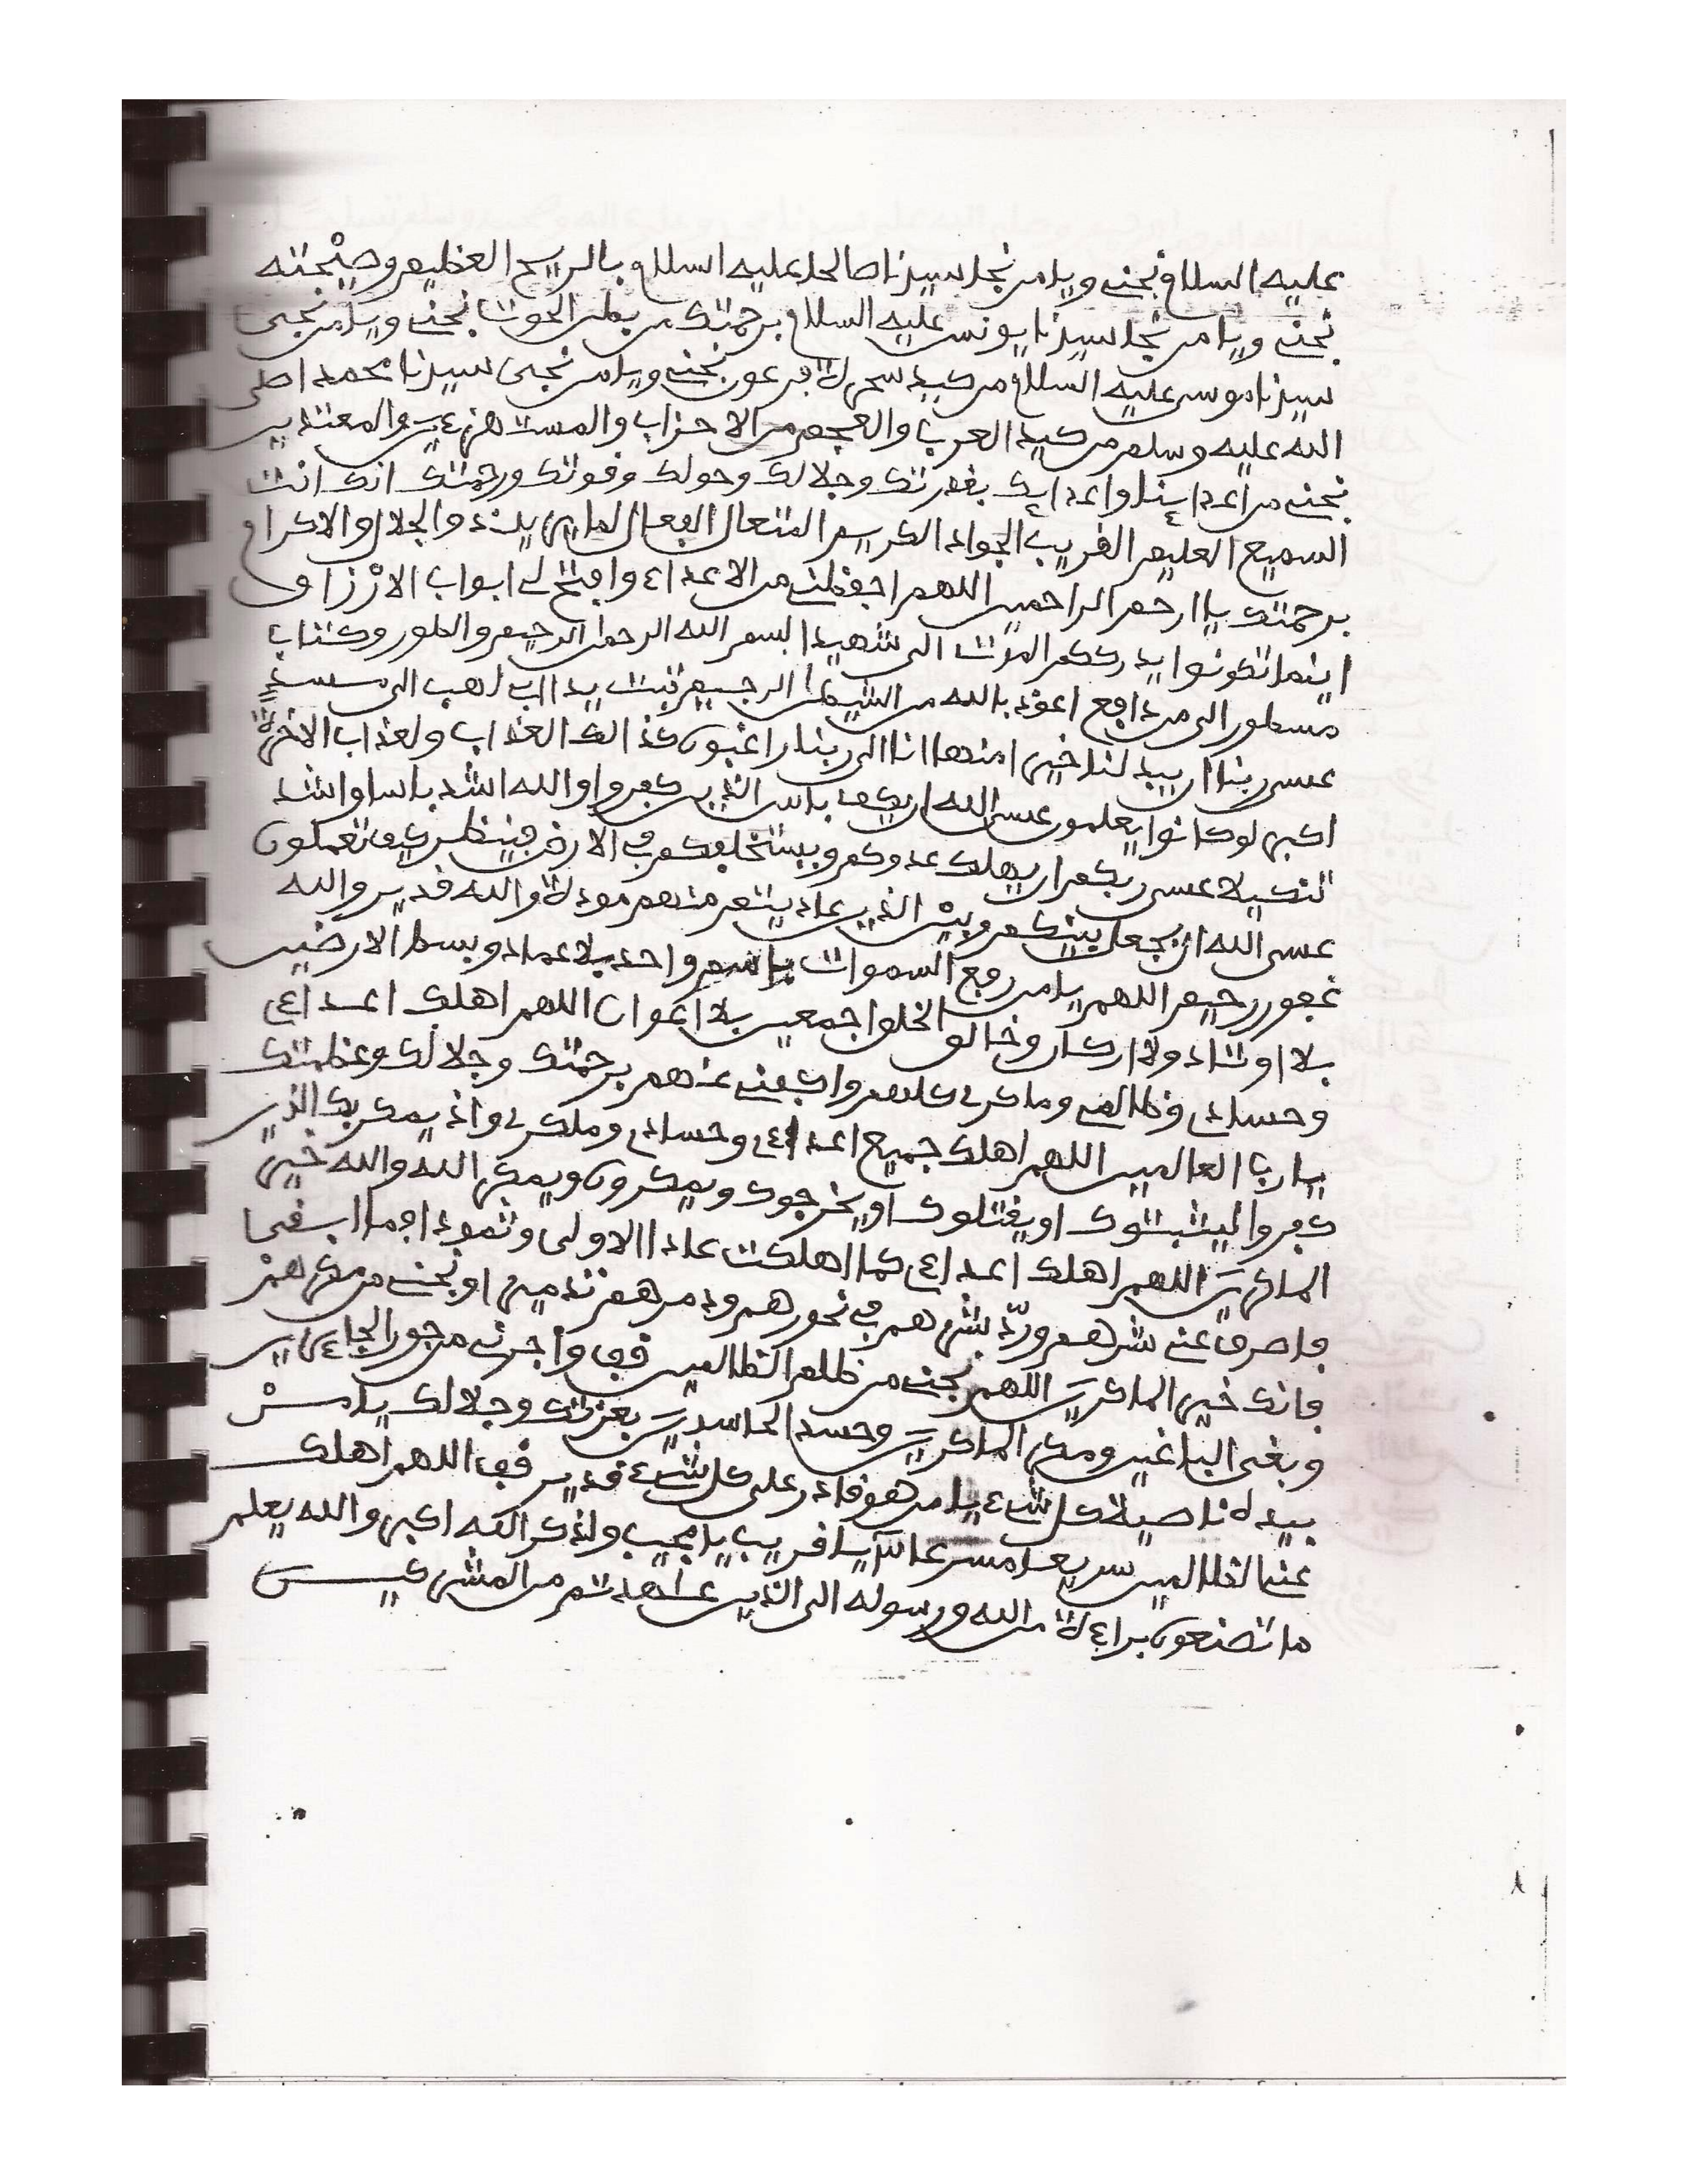 عليه السلام نجني ويامن نجا سيدنا صالحا عليه السلام بالريح العظيم وصيحته
نجني ويامن نجا سيدنا يونس عليه السلام برحمتك من بطن الحوت نجني ويامن نجى
سيدنا موسى عليه السلام من كيد سحرة فرعون نجني ويامن نجى سيدنا محمد اصلى
الله عليه وسلم من كيد العرب والعجم من الاحزاب والمستهزءين والمعتدين
نجني من اعداينا واعدايك بقدرتك وجلالك وحولك وقوتك ورحمتك انك انت
السميع العليم القريب الجواد الكريم المتعال الفعال لما يريد ذو الجلال والاكرام
برحمتك يا ارحم الراحمين اللهم احفظني من الاعداء وافتح لي ابواب الارزاق
اينما تكونوا يدرككم الموت الى شهيدا بسم الله الرحمن الرحيم والطور وكتاب
مسطور الى من دافع اعوذ بالله من الشيطن الرجيم تبت يدا ابي لهب الى مسد
عسى ربنا ان يبدلنا خيرا منها انا الى ربنا راغبون كذالك العذاب ولعذاب الاخرة
اكبر لوكانوا يعلمون عسى الله ان يكف باس الذين كفروا والله اشد باسا واشد
تنكيلا عسى ربكم ان يهلك عدوكم ويستخلفكم في الارض فينظر كيف تعملون
عسى الله ان يجعل بينكم وبين الذين عاديتم منهم مودة والله قدير والله
غفور رحيم اللهم يامن رفع السموات باسم واحد بلا عماد وبسط الارضين
بلا اوتاد ولا اركان وخالق الخلق اجمعين بلا اعوان اللهم اهلك اعداءي
وحسادي وظالمي وماكري كلهم واكفني عنهم برحمتك وجلالك وعظمتك
يارب العالمين اللهم اهلك جميع اعداءي وحسادي وماكري واذ يمكر بك الذين
كفروا ليثبتوك او يقتلوك او يخرجوك ويمكرون ويمكر الله والله خير
الماكرين اللهم اهلك اعداءي كما اهلكت عادا الاولى وثمودا فما ابقى
فاصرف عني شرهم وردّ بشرهم في نحورهم ودمرهم تدميرا ونجني من مكرهم
فانك خير الماكرين اللهم نجني من ظلم الظالمين واجرني من جور الجاءرين
وبغى الباغين ومكر الماكرين وحسد الحاسدين بعزتك وجلالك يامن
بيده ناصية كل شيء يامن هو قادر على كل شيء قدير اللهم اهلك
عنا الظالمين سريعا مسرعا يا قريب يا مجيب ولذكر الله اكبر والله يعلم
ما تصنعون براءة من الله ورسوله الى الذين عاهدتم من المشركين